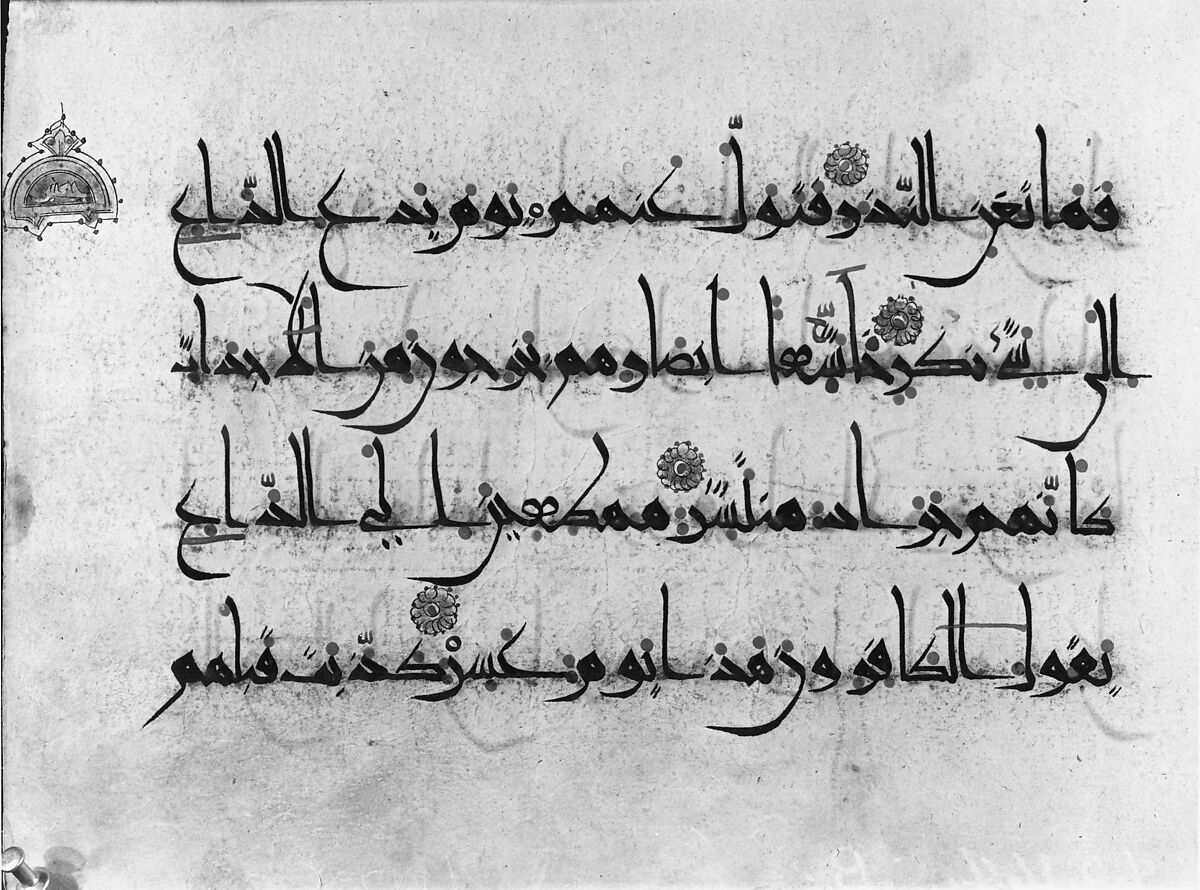 فما تغن النذر فتول عنهم يوم يدع الداع
الى شيء نكر خشعا ابصارهم يخرجون من الاجداث
كانهم جراد منتشر مهطعين الى الداع
يقول الكافرون هذا يوم عسر كذبت قبلهم